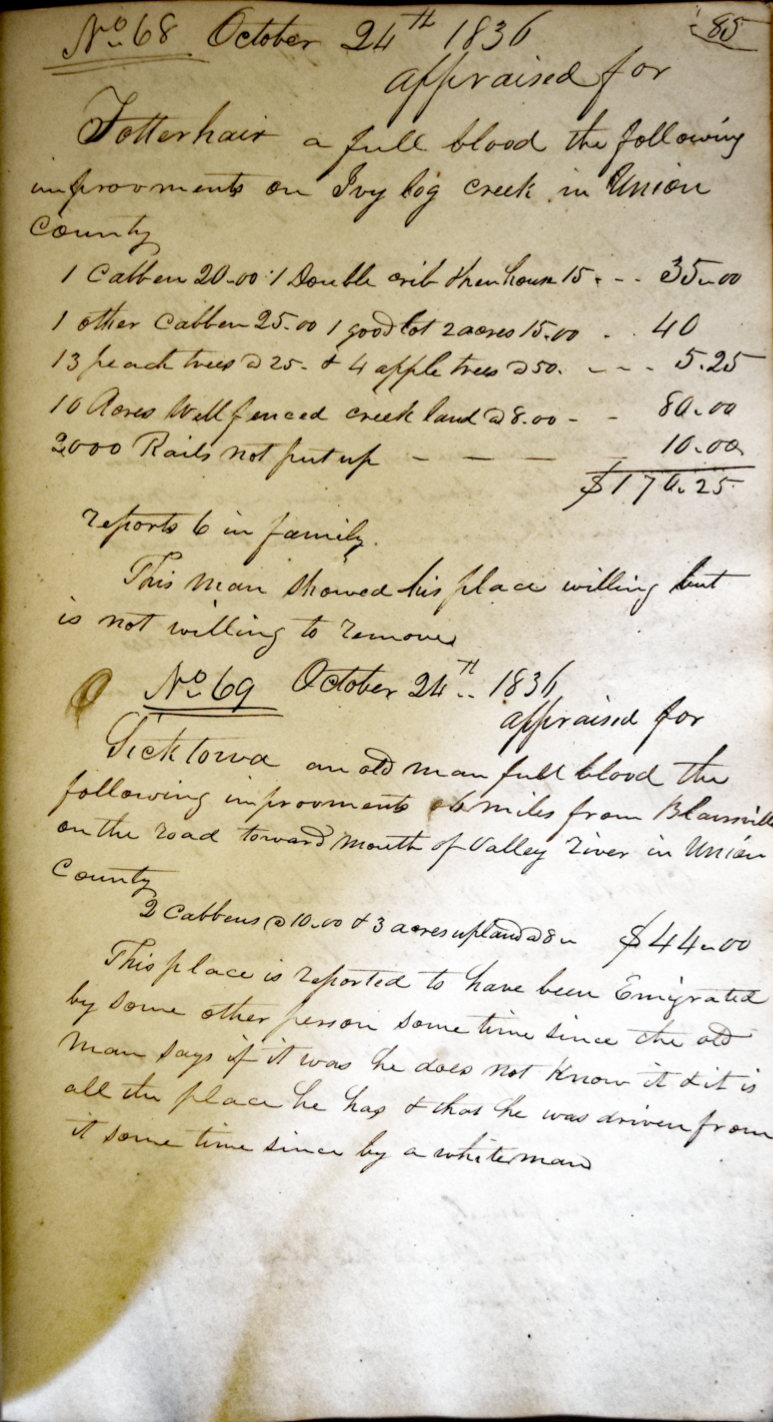 85
No 68 October 24th 1836
appraised for
Totterhair a full blood the following
improovments on Ivy log creek in Union
County
1 Cabben 20.00 1 Double crib & hen house 15 - - 35.00
1 other Cabben 25.00 1 good lot 2 acres 15.00 . . 40
13 peach trees @ 25. & 4 apple trees @ 50. - - - 5.25
10 Acres Well fenced creek land @ 8.00 - - 80.00
2000 Rails not put up - - - - 10.00
$170.25
reports 6 in family.
This man showed his place willing but
is not willing to remove
No 69 October 24th 1836
appraised for
Sicktowa an old man full blood the
following improovments 6 miles from Blairsville
on the road toward mouth of Valley River in Union
County
2 Cabbens @ 10.00 & 3 acres upland @ 8 $44.00
This place is reported to have been Emigrated
by some other person some time since the old
man says if it was he does not know it & it is
all the place he has & that he was driven from
it some time since by a whiteman